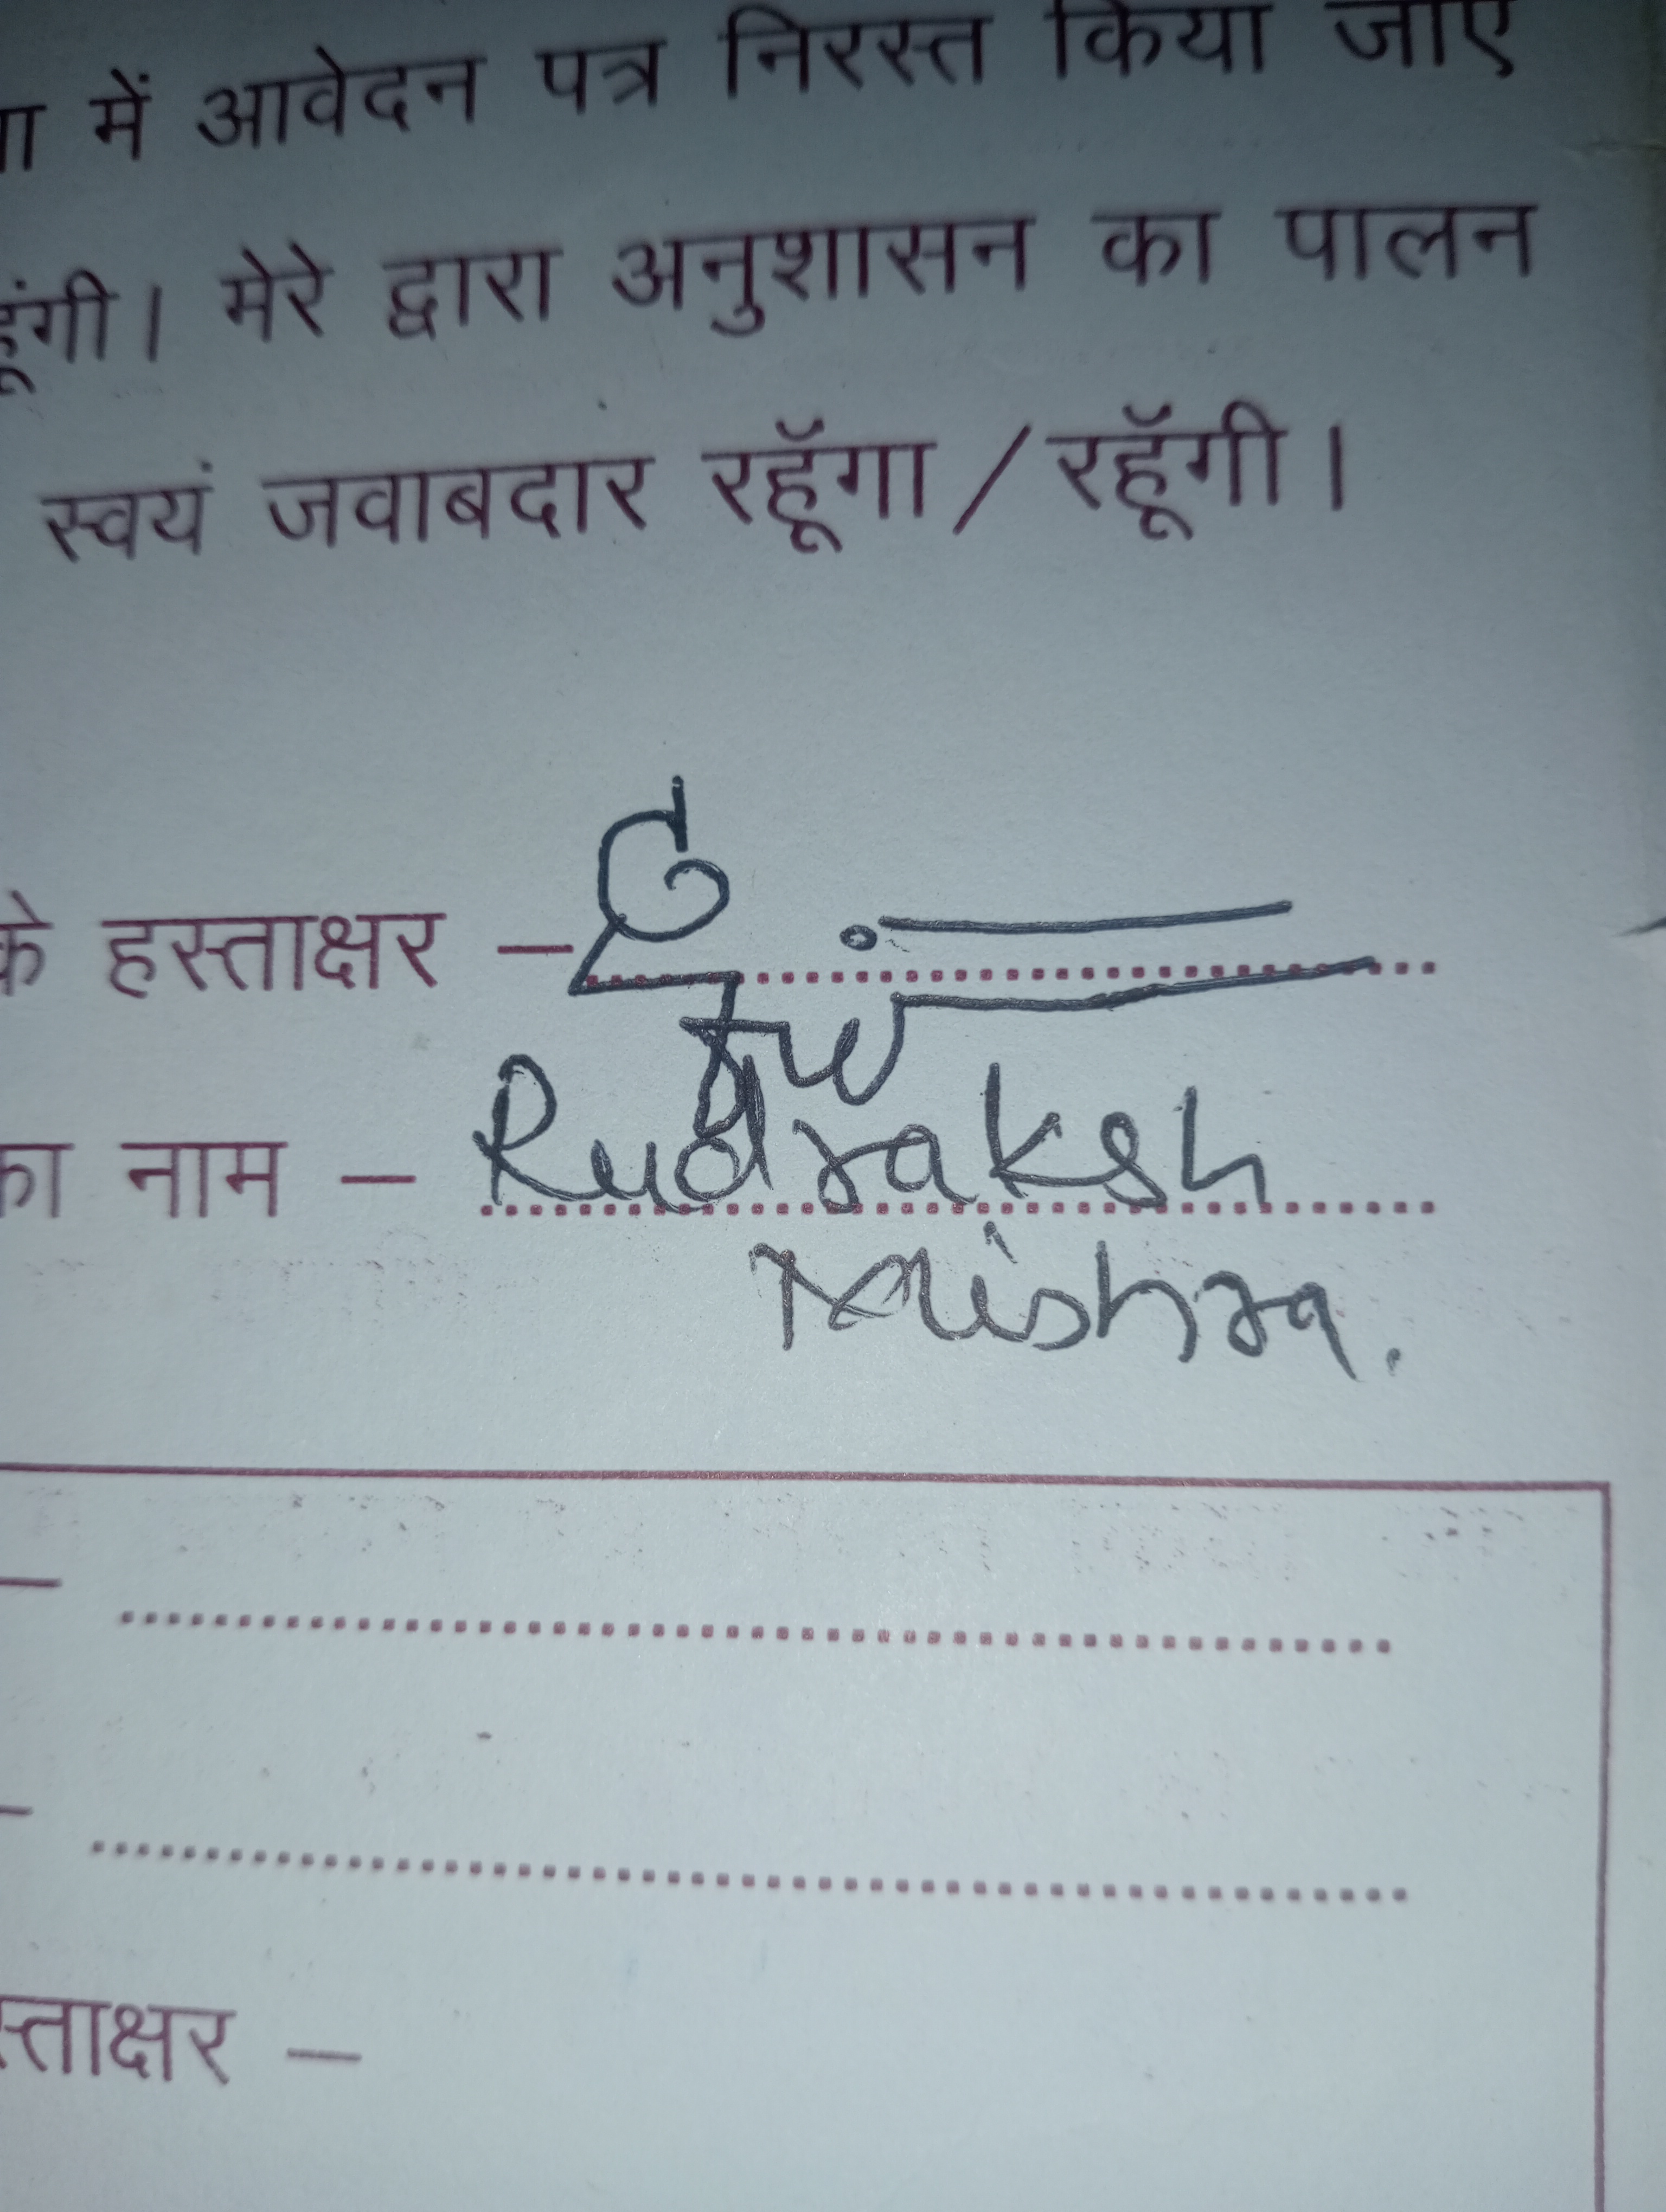 में आवेदन पत्र निरस्त किया जाए
हूंगी। मेरे द्वारा अनुशासन का पालन
स्वयं जवाबदार रहूँगा / रहूँगी।
के हस्ताक्षर –
का नाम – Rudraksh
Mishra.
स्ताक्षर –